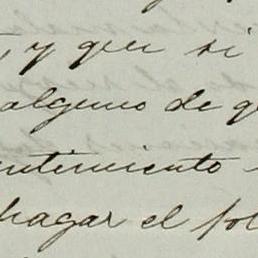 , y que si
alguno de q
ntimiento
hagar el fol